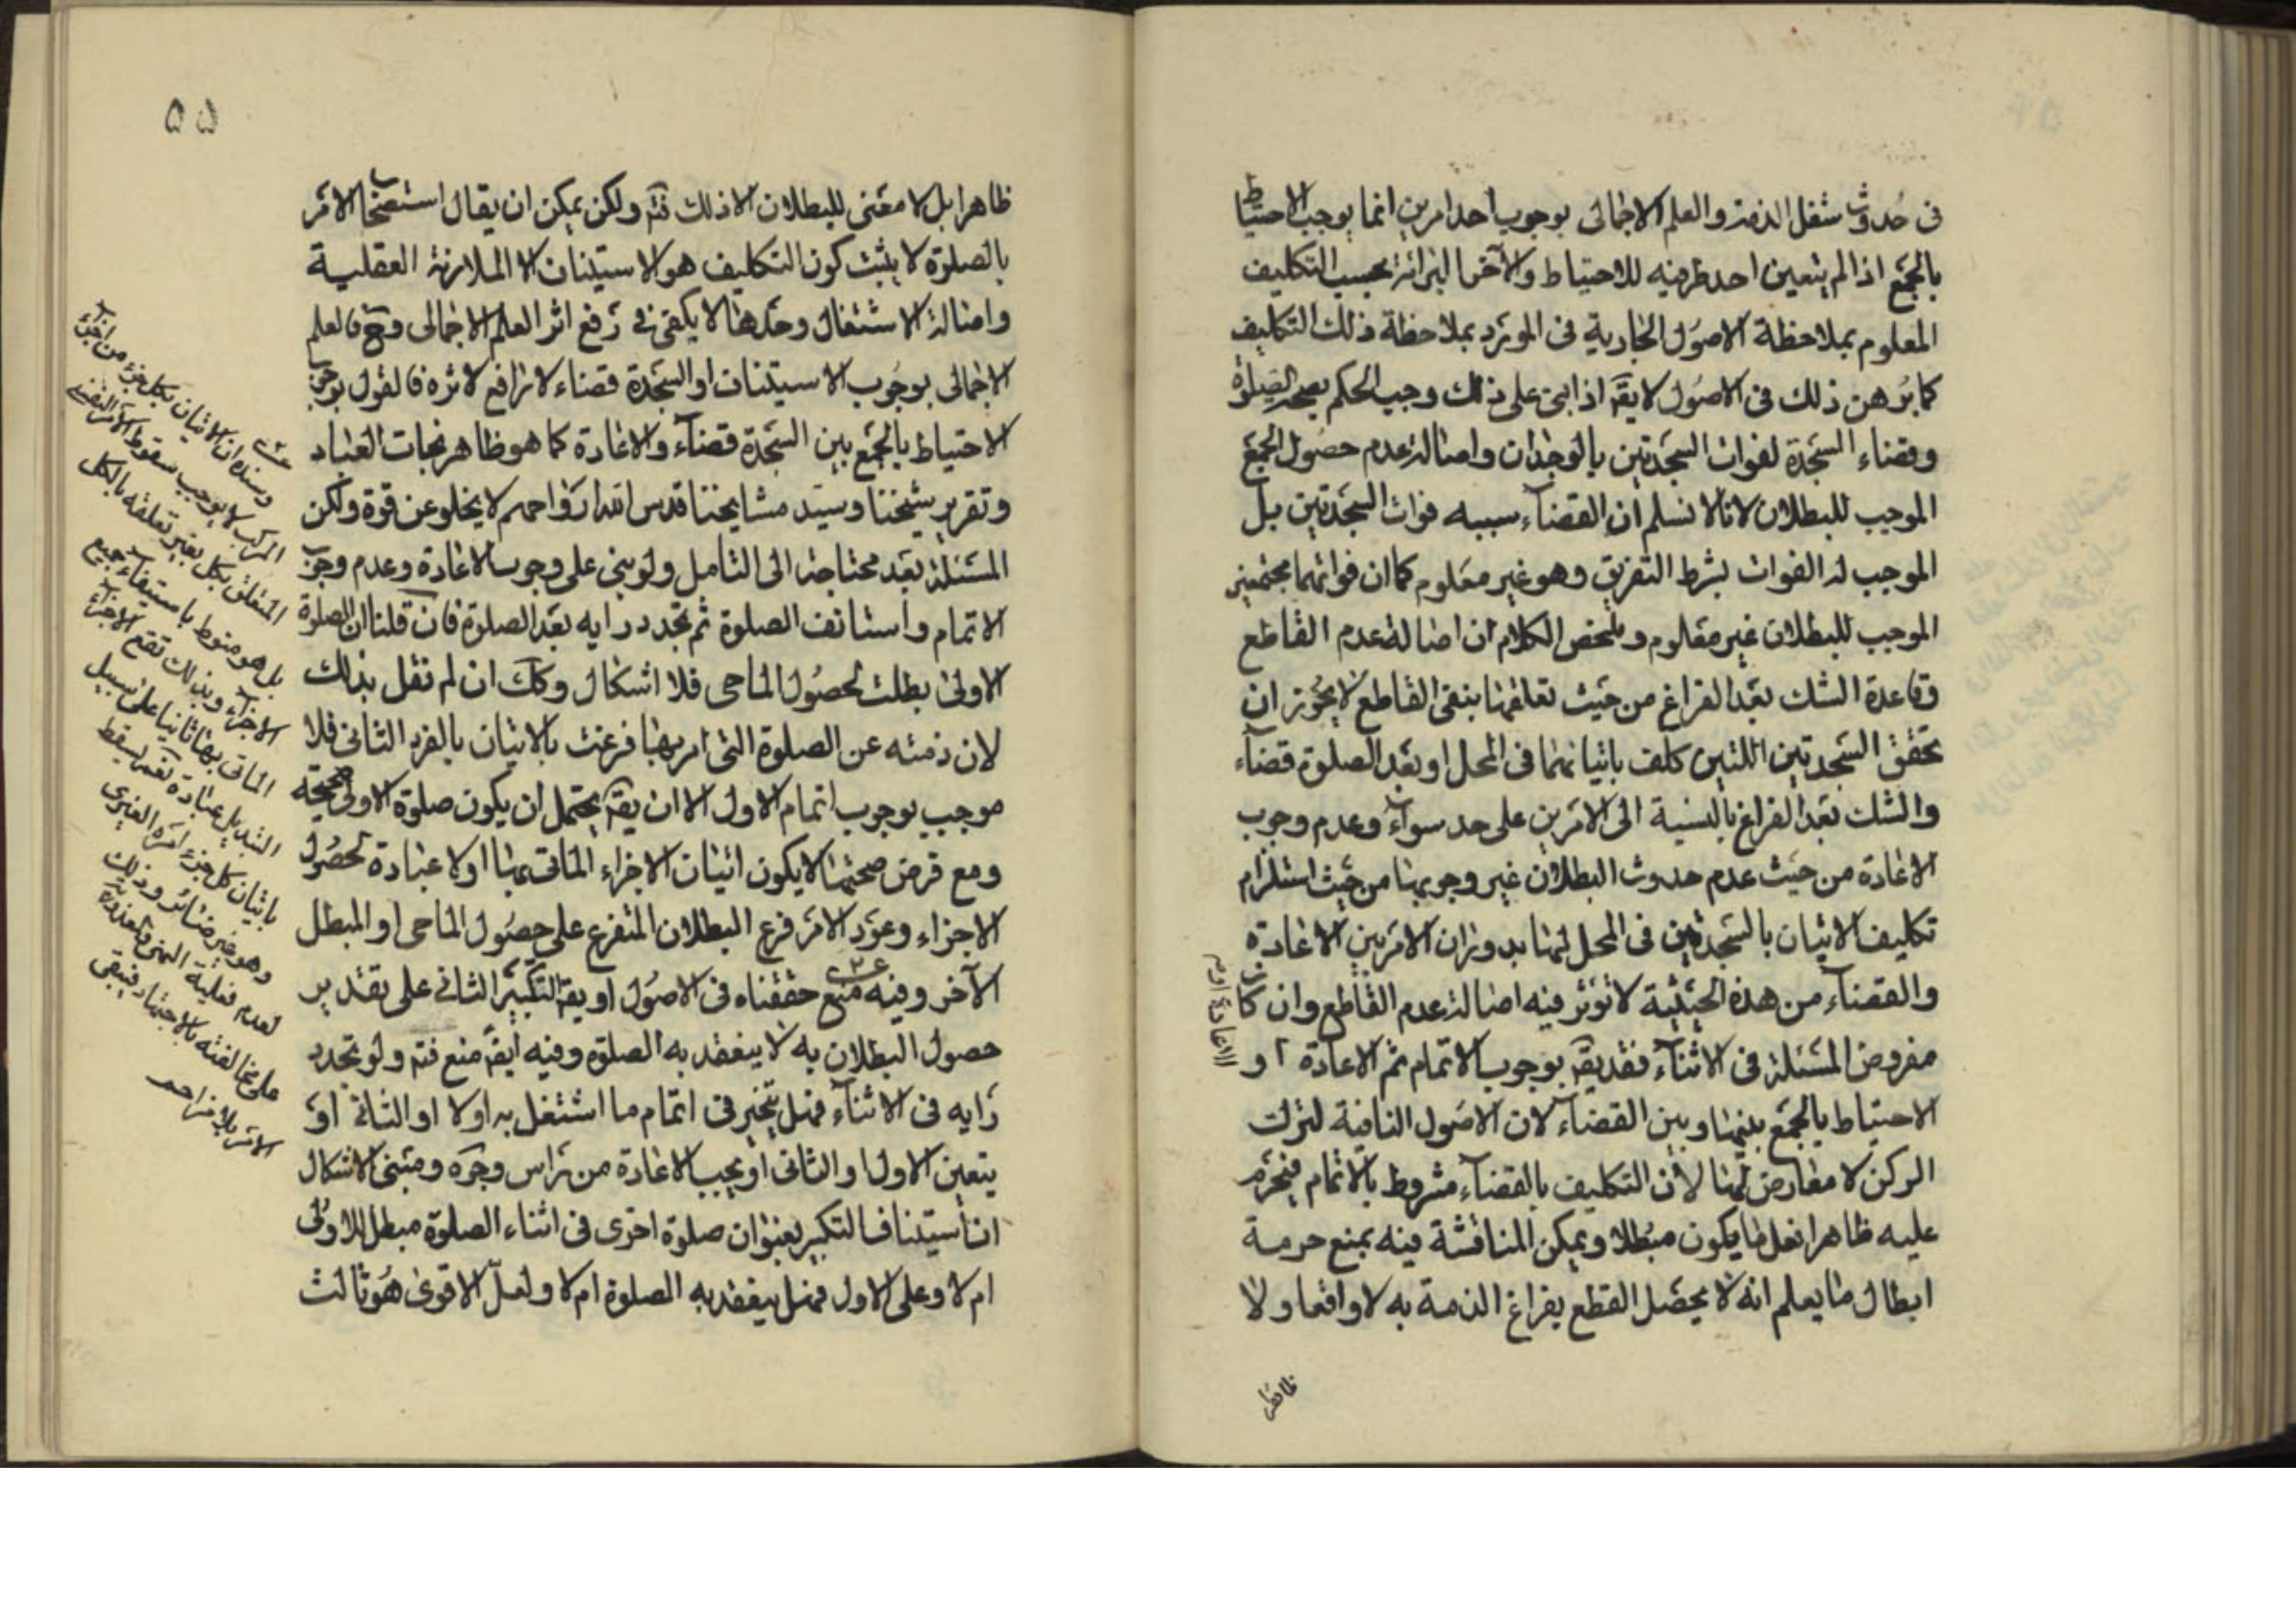 فى حدوث شغل الذمة والعلم الاجمالى بوجوب احد امرين انما يوجب الاحتياط
بالجمع اذا لم يتعين احد طرفيه للاحتياط والآخر البرائة بحسب التكليف
المعلوم بملاحظة الاصول الجارية فى المورد بملاحظة ذلك التكليف
كما برهن ذلك فى الاصول لا يقه اذا بنى على ذلك وجب الحكم بصحة الصلوة
وقضاء السجدة لفوات السجدتين بالوجدان واصالة عدم حصول الجمع
الموجب للبطلان لانا لا نسلم ان القضاء سببه فوات السجدتين بل
الموجب له الفوات بشرط التفريق وهو غير معلوم كما ان فواتهما مجتمعين
الموجب للبطلان غير معلوم وملخص الكلام ان اصالة عدم القاطع
وقاعدة الشك بعد الفراغ من حيث تعلقهما بنفى القاطع لا يحوز ان
تحقق السجدتين اللتين كلف باتيانهما فى المحل او بعد الصلوة قضاء
والشك بعد الفراغ بالنسبة الى الامرين على حد سواء وعدم وجوب
الاعادة من حيث عدم حدوث البطلان غير وجوبها من حيث استلزام
تكليف الاتيان بالسجدتين فى المحل لها بدوران الامر بين الاعادة
والقضاء من هذه الحيثية لا تؤثر فيه اصالة عدم القاطع وان كان
مفروض المسئلة فى الاثناء فقد يقه بوجوب الاتمام ثم الاعادة ٢ و
الاحتياط بالجمع بينها وبين القضاء لان الاصول النافية لترك
الركن لا معارض لها لأن التكليف بالقضاء مشروط بالاتمام فيحرم
عليه ظاهرا فعل ما يكون مبطلا ويمكن المناقشة فيه بمنع حرمة
ابطال ما يعلم انه لا يحصل القطع بفراغ الذمة به لا واقعا ولا
ظاهرا
٥٥
ظاهرا بل لا معنى للبطلان الا ذلك فته ولكن يمكن ان يقال استصحاب الامر
بالصلوة لا يثبت كون التكليف هو الاستيناف الا الملازمة العقلية
واصالة الاشتغال وحدها لا يكفى فى رفع اثر العلم الاجمالى وح فالعلم
الاجمالى بوجوب الاستيناف او السجدة قضاء لا رافع لاثره فالقول بوجوب
الاحتياط بالجمع بين السجدة قضاء والاعادة كما هو ظاهر نجات العباد
وتقرير شيخنا وسيد مشايخنا قدس الله ارواحهم لا يخلو عن قوة ولكن
المسئلة بعد محتاجة الى التامل ولو بنى على وجوب الاعادة وعدم وجوب
الاتمام واستانف الصلوة ثم تجدد رايه بعد الصلوة فان قلنا ان الصلوة
الاولى بطلت لحصول الماحى فلا اشكال وكك ان لم نقل بذلك
لان ذمته عن الصلوة التى امر بها فرغت بالاتيان بالفرد الثانى فلا
موجب لوجوب اتمام الاول الا ان يقه يحتمل ان يكون صلوة الاولى صحيحة
ومع فرض صحتها لا يكون اتيان الاجزاء الماتى بها اولا عبادة لحصول
الاجزاء وعود الامر فرع البطلان المتفرع على حصول الماحى او المبطل
الآخر وفيه منع حققناه فى الاصول او يقه التكبير الثانى على تقدير
حصول البطلان به لا ينعقد به الصلوة وفيه ايضه منع فته ولو تجدد
رايه فى الاثناء فهل يتخير فى اتمام ما اشتغل به اولا او الثانى او
يتعين الاول او الثانى او يجب الاعادة من راس وجوه ومبنى الاشكال
ان استيناف التكبير بعنوان صلوة اخرى فى اثناء الصلوة مبطل للاولى
ام لا وعلى الاول فهل ينعقد به الصلوة ام لا ولعل الاقوى هو ثالث
وسنده ان الاتيان بكل جزء من اجزاء
المركب لا يوجب سقوط الامر النفسى
المتعلق بكل بغير تعلقه بالكل
بل هو منوط باستيفاء جميع
الاجزاء وبذلك تقع الاجزاء
الماتى بها ثانيا على سبيل
التبديل عبادة نعم يسقط
باتيان كل جزء امره الغيرى
وهو غير ضائر وذلك
لعدم فعلية النهى
على مخالفته بالاجتهاد فيبقى
الامر بلا مزاحم